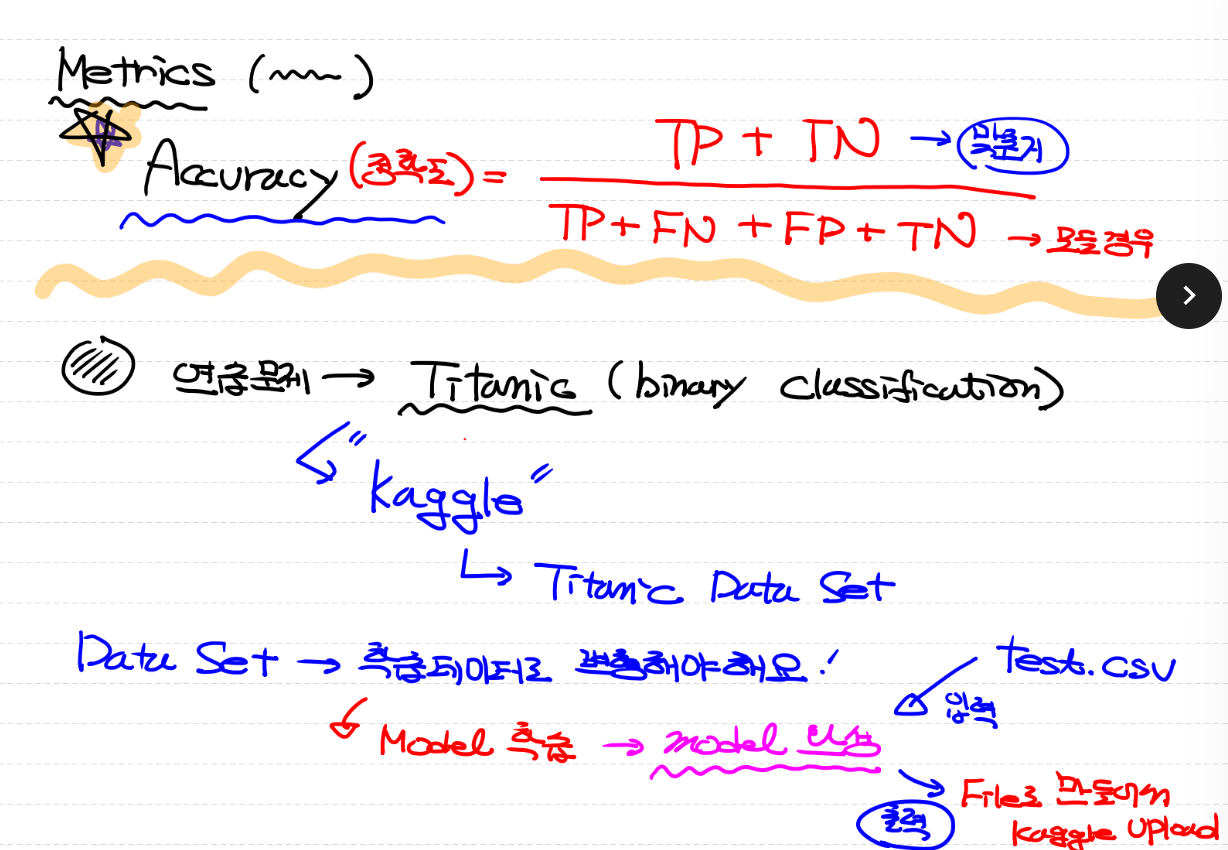 Metrics (
Accuracy (정확도) = TP + TN → 맞춘거
TP + FN + FP + TN → 모든경우
연습문제 → Titanic (binary classification)
"Kaggle"
Titanic Data Set
Data Set → 학습데이터로 변형해야해요! test.csv
입력
Model 학습 → model 완성
File로 만들어서
출력 Kaggle Upload